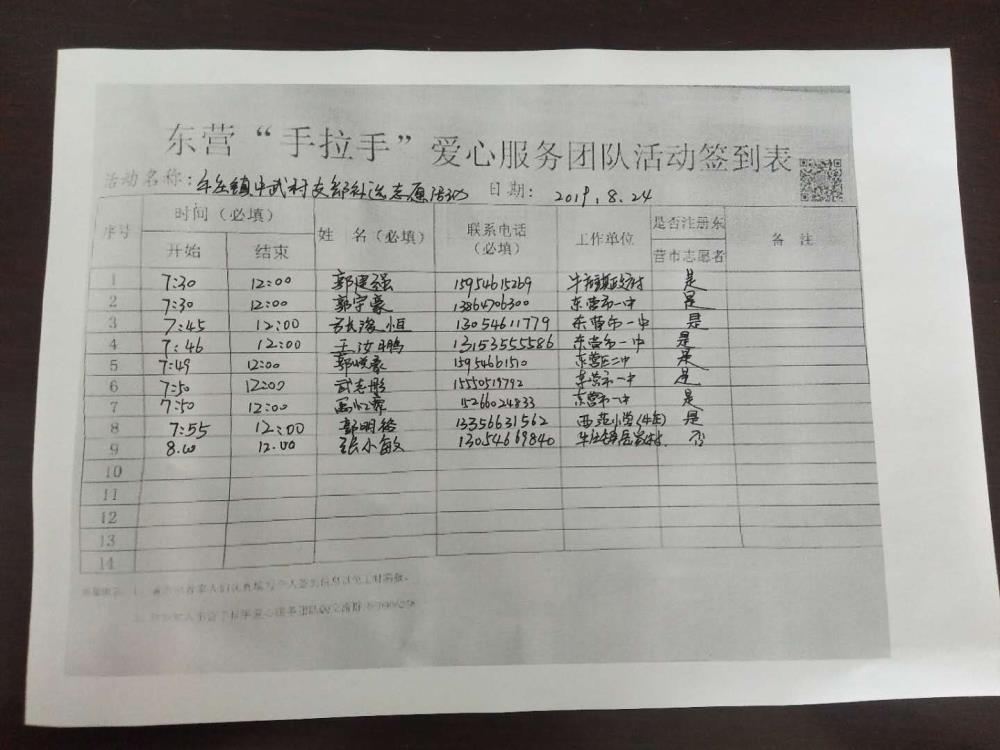 东营“手拉手”爱心服务团队活动签到表
活动名称：牛庄镇中武村支部科送志愿活动 日期： 2019.8.24
序号 时间（必填） 姓 名（必填） 联系电话（必填） 工作单位 是否注册东营市志愿者 备 注
开始 结束
1 7:30 12:00 郭建强 15954615269 是
2 7:30 12:00 郭宇豪 13864706300 东营市一中 是
3 7:45 12:00 恒 13054611779 东营市一中 是
4 7:46 12:00 王汝鹏 13153555586 东营市一中 是
5 7:49 12:00 15954661510 东营区二中 是
6 7:50 12:00 武志彤 15550519792 东营市一中 是
7 7:50 12:00 15266024833 东营市一中 是
8 7:55 12:00 郭明裕 13356631562 西范小学(牛庄) 是
9 8.00 12.00 张小敏 13054669840 否
10
11
12
13
14